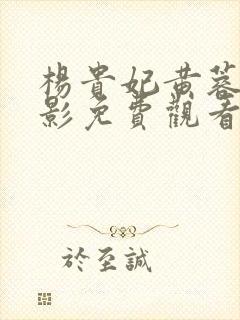 楊貴妃黄蓉
影免費觀看
於至誠